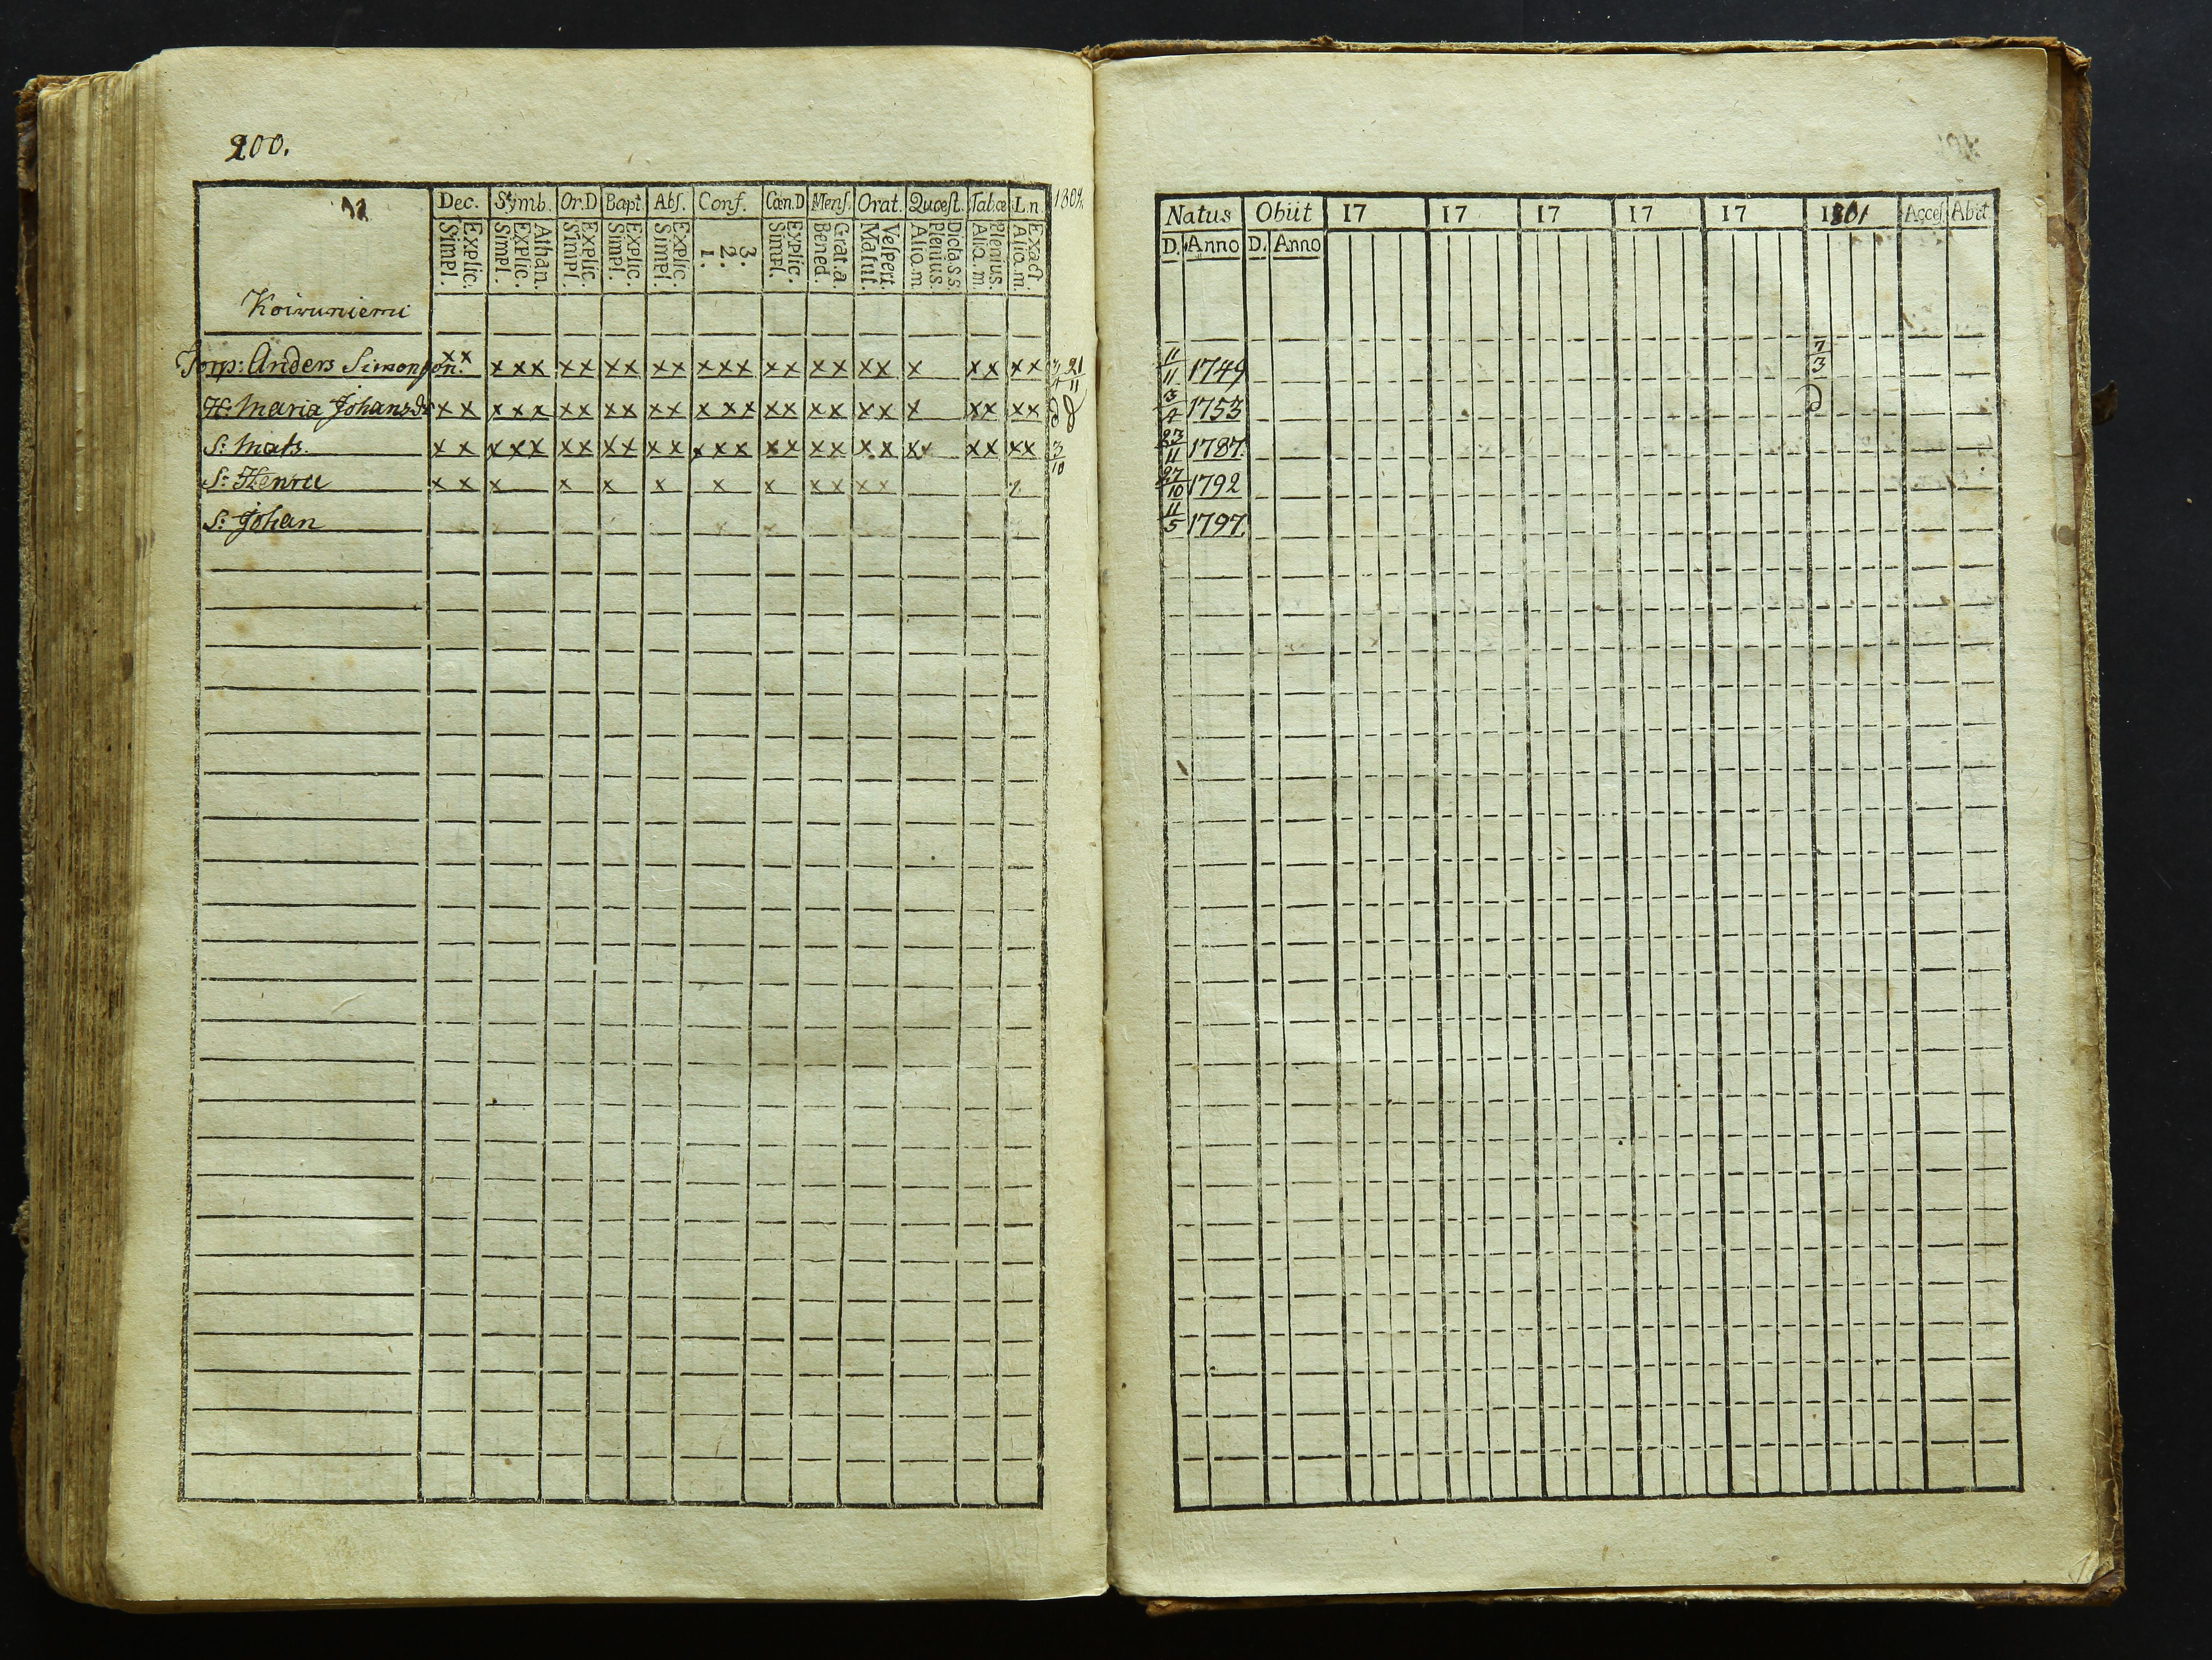 200.
Dec. Symb. Or.D Bapt. Abs. Conf. Cœn.D Mens. Orat. Quæst. Tab.œ L.n 1802
Explic. Simpl. Athan. Explic. Simpl. Explic. Simpl. Explic. Simpl. Explic. Simpl. 3. 2. 1. Explic. Simpl. Grat.a. Bened. Vespert. Matut. Dicta s.s. Plenius. Alio.m. Plenius. Alio.m. Exact. Alio.m.
Koivuniemi
Torp: Anders Simonsson. xx xxx xx xx xx xxx xx xx xx x xx xx 3/4 21/11
H: Maria Johansdr xx xxx xx xx xx xxx xx xx xx x xx xx d d
S: Mats. xx xxx xx xx xx xxx xx xx xx xx xx xx 3/10
S: Henric xx x x x x x x xx xx x
S: Johan
Natus Obiit 17 17 17 17 17 1801 Acces. Abit
D. Anno D. Anno
11/11 1749 7/3
3/4 1753 d
23/11 1787.
27/10 1792
11/5 1797.